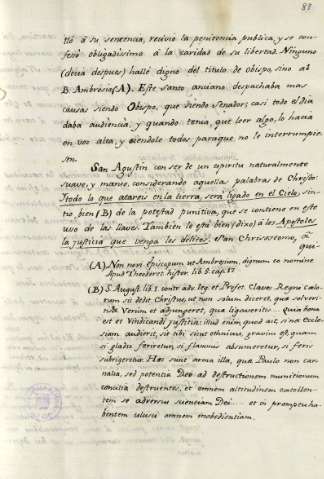 83
tió á su sentencia, recivio la penitencia publica, y se con-
fesó obligadissimo á la caridad de su libertad. Ninguno
(decia despues) hallé digno del titulo de Obispo, sino á
B. Ambrosio (A). Este santo anciano despachaba mas
causas siendo Obispo, que siendo Senador; casi todo el dia
daba audiencia, y quando tenia, que leer algo, lo hacia
en voz alta, y oiendole todos, para que no le interrumpie-
sen.
San Agustin con ser de un espiritu naturalmente
suave, y manso, considerando aquellas palabras de Christo:
Todo lo que atareis en la tierra, será ligado en el Cielo, sin-
tio bien (B) de la potestad punitiva, que se contiene en este
uso de las llaves. Tambien le está bien (dixo) á los Apostoles
la justicia que venga los delitos. San Chrisostomo, á
qui-
(A) Non novi Episcopum ut Ambrosium, dignum eo nomine
Apud Theodoret. histor. lib. 5. cap. 17
(B) S. August. lib. 1 contr. adv. leg. et Profet. Claves Regni Caelo-
rum sic dedit Christus, ut non solum diceret, quae solveri-
tis Verum et adjungeret, quae ligaveritis. Quia bona
est et vindicandi justitia: illud enim, quod ait, si nec Eccle-
siam audierit, sit tibi sicut ethnicus, gravius est, quam
si gladio feriretur, si flammis absumeretur, si feris
subrigeretur. Haec sunt arma illa, quae Paulo non car-
nalia, sed potentia Deo ad destructionem munitionum
consilia destruentes, et omnem altitudinem extollen-
tem se adversus scientiam Dei et in promptu ha-
bentem ulcisci omnem inobedientiam.